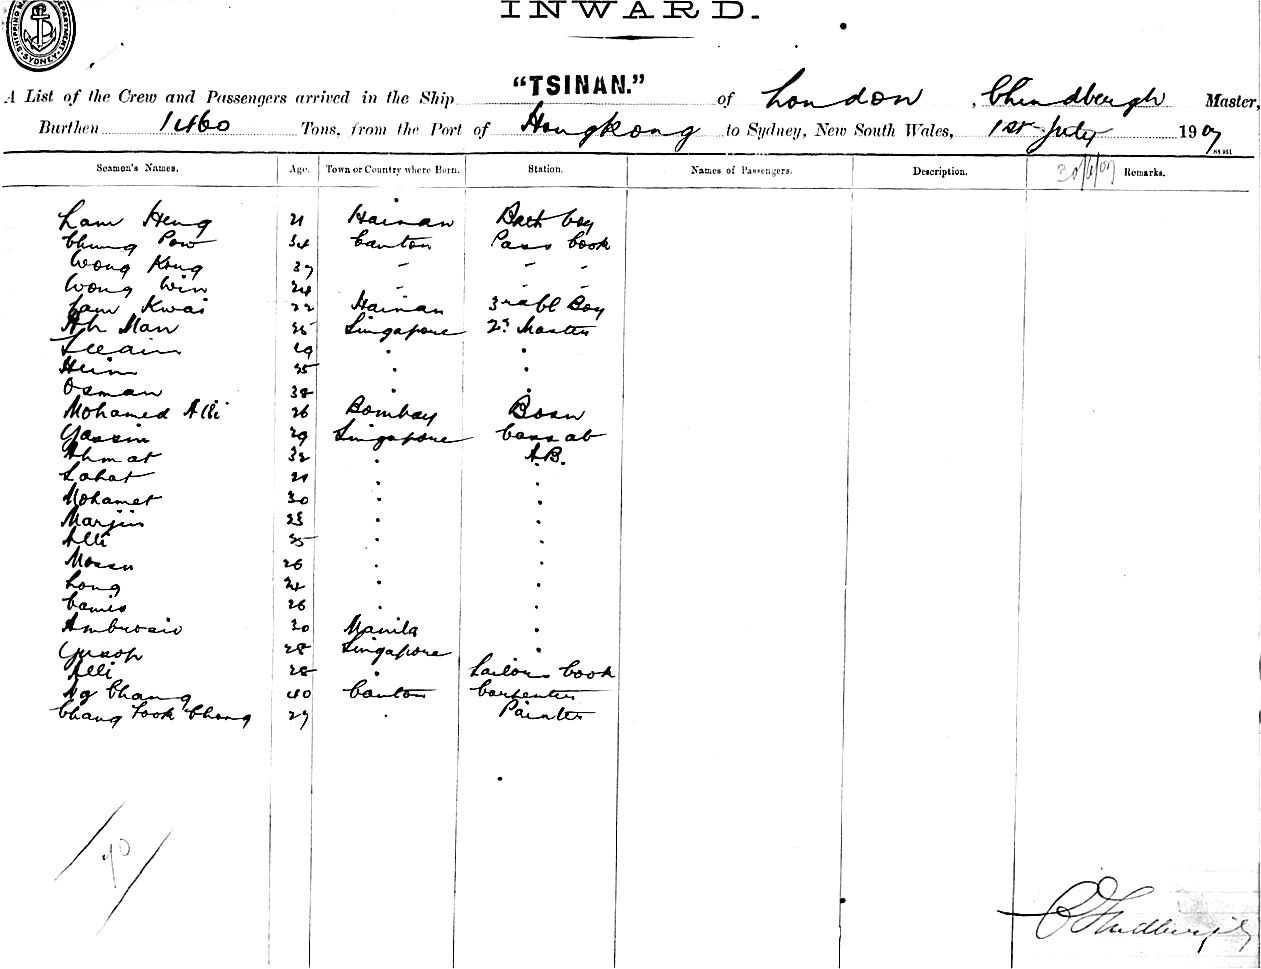 SHIPPING MASTER'S DEPARTMENT SYDNEY
INWARD.
A List of the Crew and Passengers arrived in the Ship "TSINAN." of London, Master,
Burthen 1460 Tons, from the Port of Hongkong to Sydney, New South Wales, 1st July 1907
Seamen's Names. Age. Town or Country where Born. Station. Names of Passengers. Description. 30/6/07 Remarks.
Lam Heng 21 Hainan Bath boy
Chung Pow 34 Canton Pass Cook
Wong Kong 37 " " "
Wong Win 24 " " "
Lam Kwai 22 Hainan Boy
Ah Man 25 Singapore
29 " "
35 " "
Osman 38 " "
Mohamed Alli 26 Bombay Bosn
Yassin 29 Singapore Cassab
Ahmat 32 " A.B.
Lahat 21 " "
Mohamet 30 " "
Marjin 23 " "
Alli 35 " "
26 " "
Long 24 " "
26 " "
Ambrosio 30 Manila "
Yusop 28 Singapore "
Alli 28 " Sailors Cook
Ng Chang 40 Canton Carpenter
Chang Fook Chong 27 " Painter